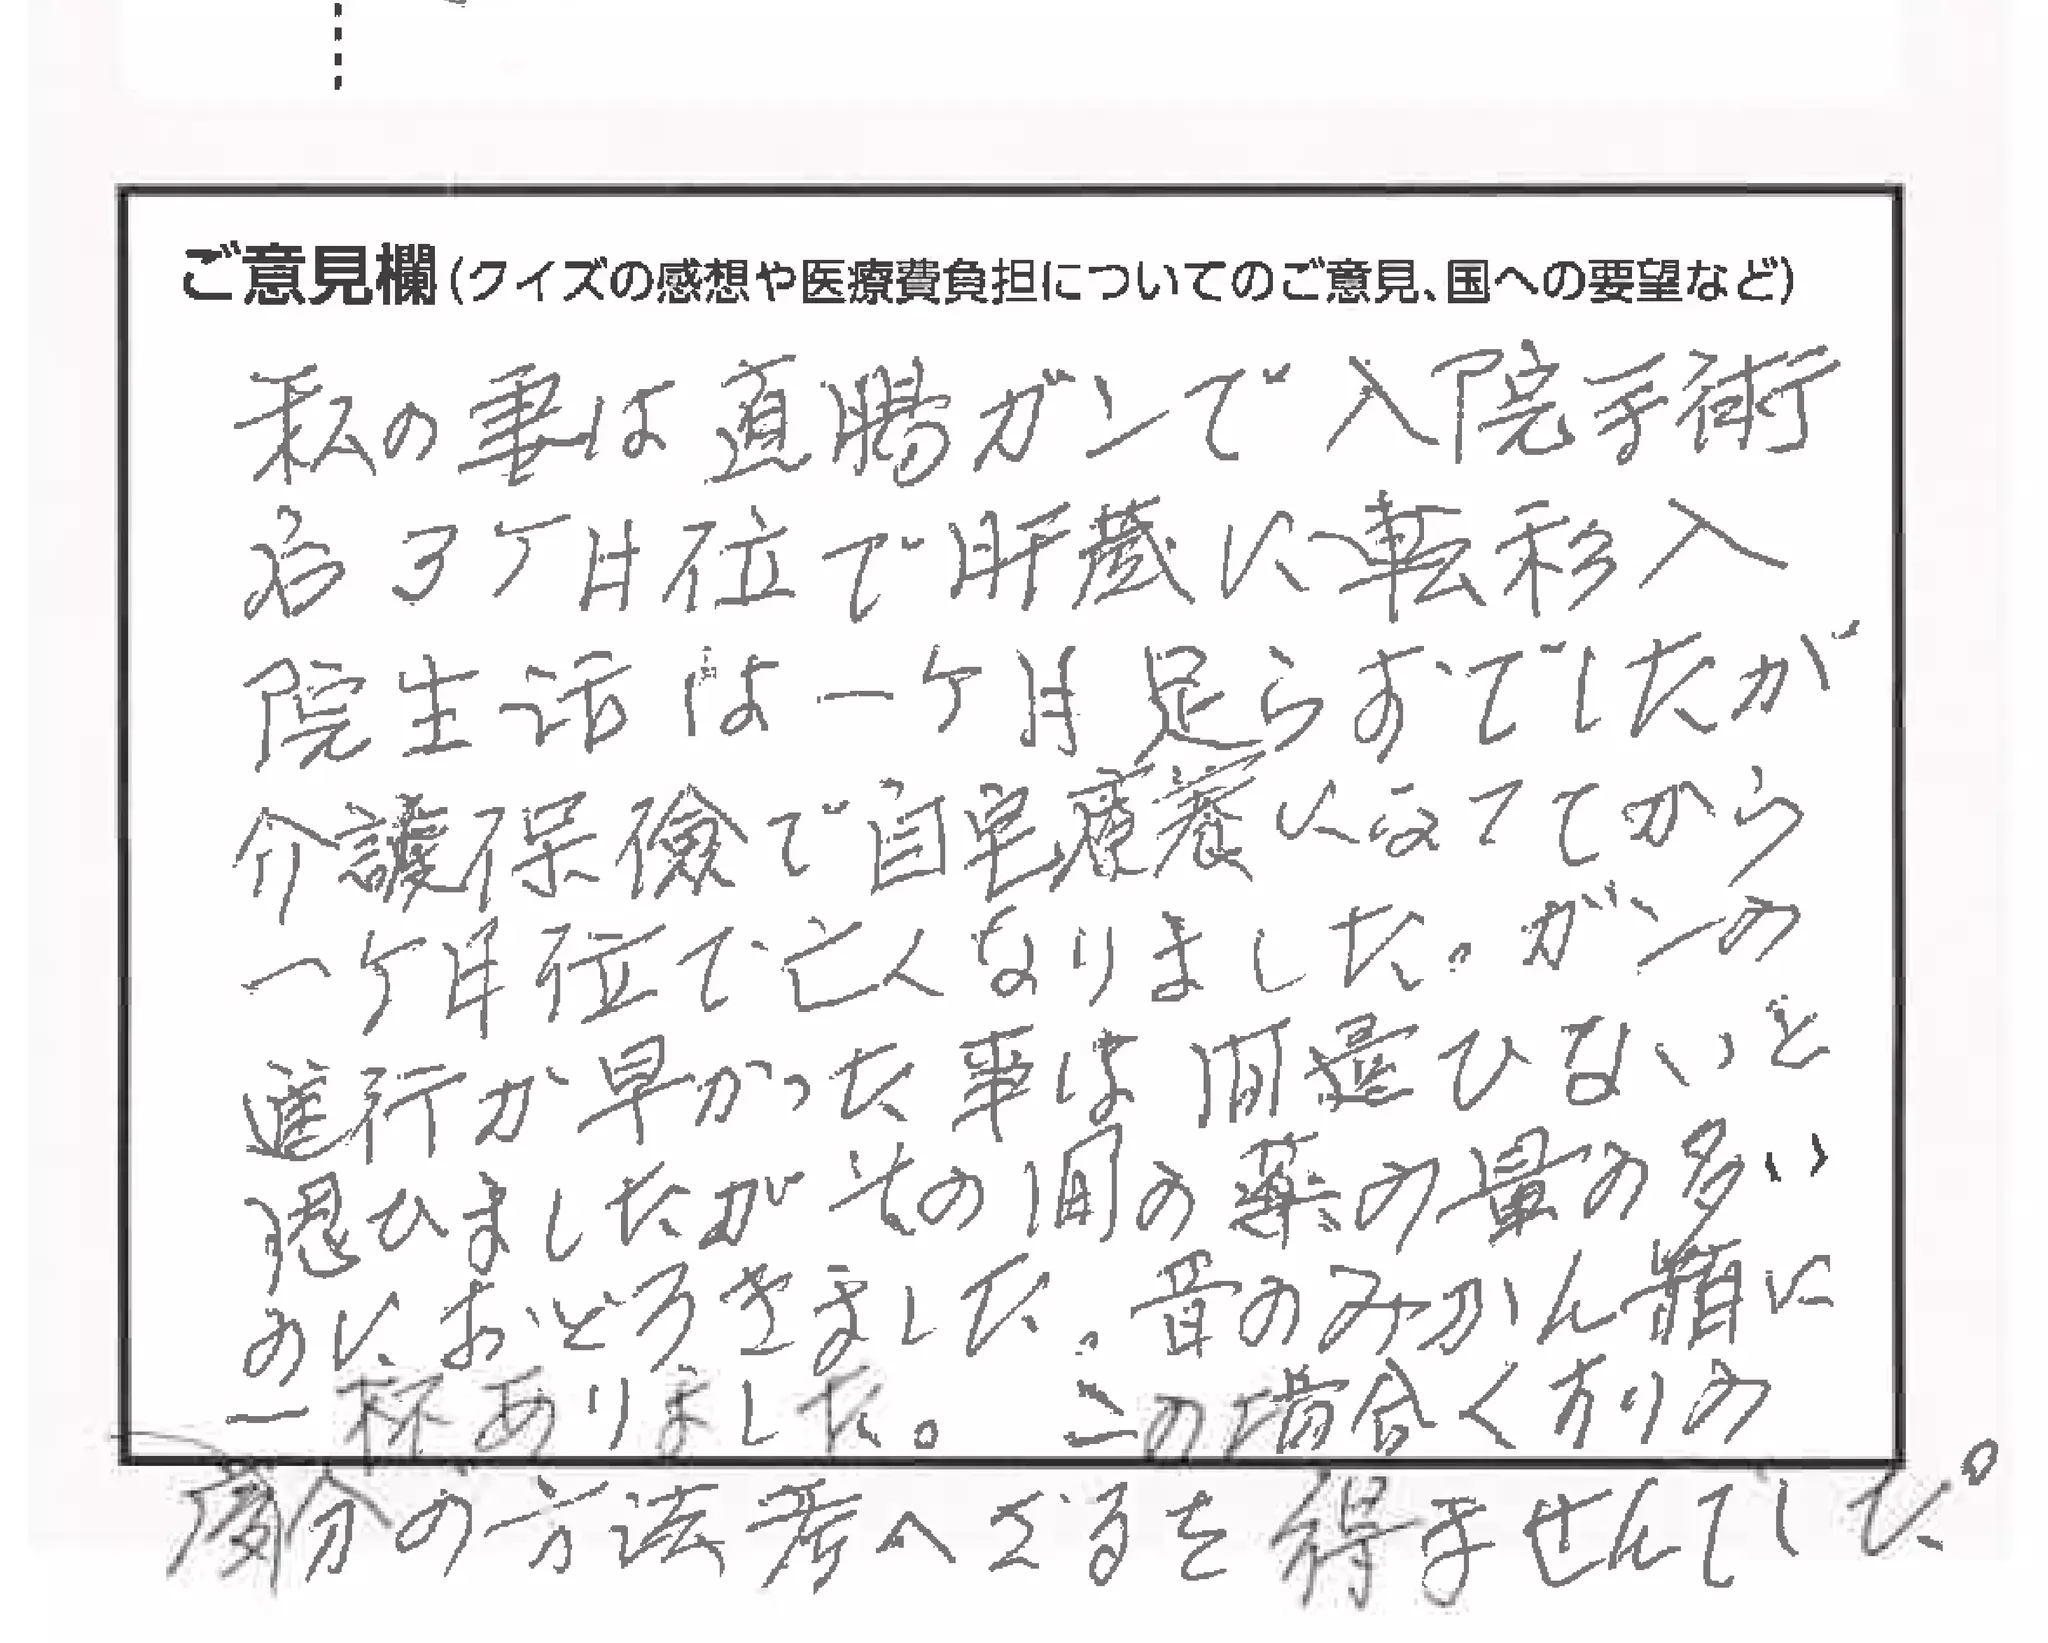 ご意見欄(クイズの感想や医療費負担についてのご意見、国への要望など)
私の妻は直腸ガンで入院手術
后3ケ月位で肝蔵に転移入
院生活は一ケ月足らずでしたが
介護保険で自宅療養になってから
一ケ月位で亡くなりました。ガンの
進行が早かった事は間違ひないと
思ひましたがその間の薬の量の多い
のにおどろきました。昔のみかん箱に
一杯ありました。この場合くすりの
廃分の方法考へざるを得ませんでした。